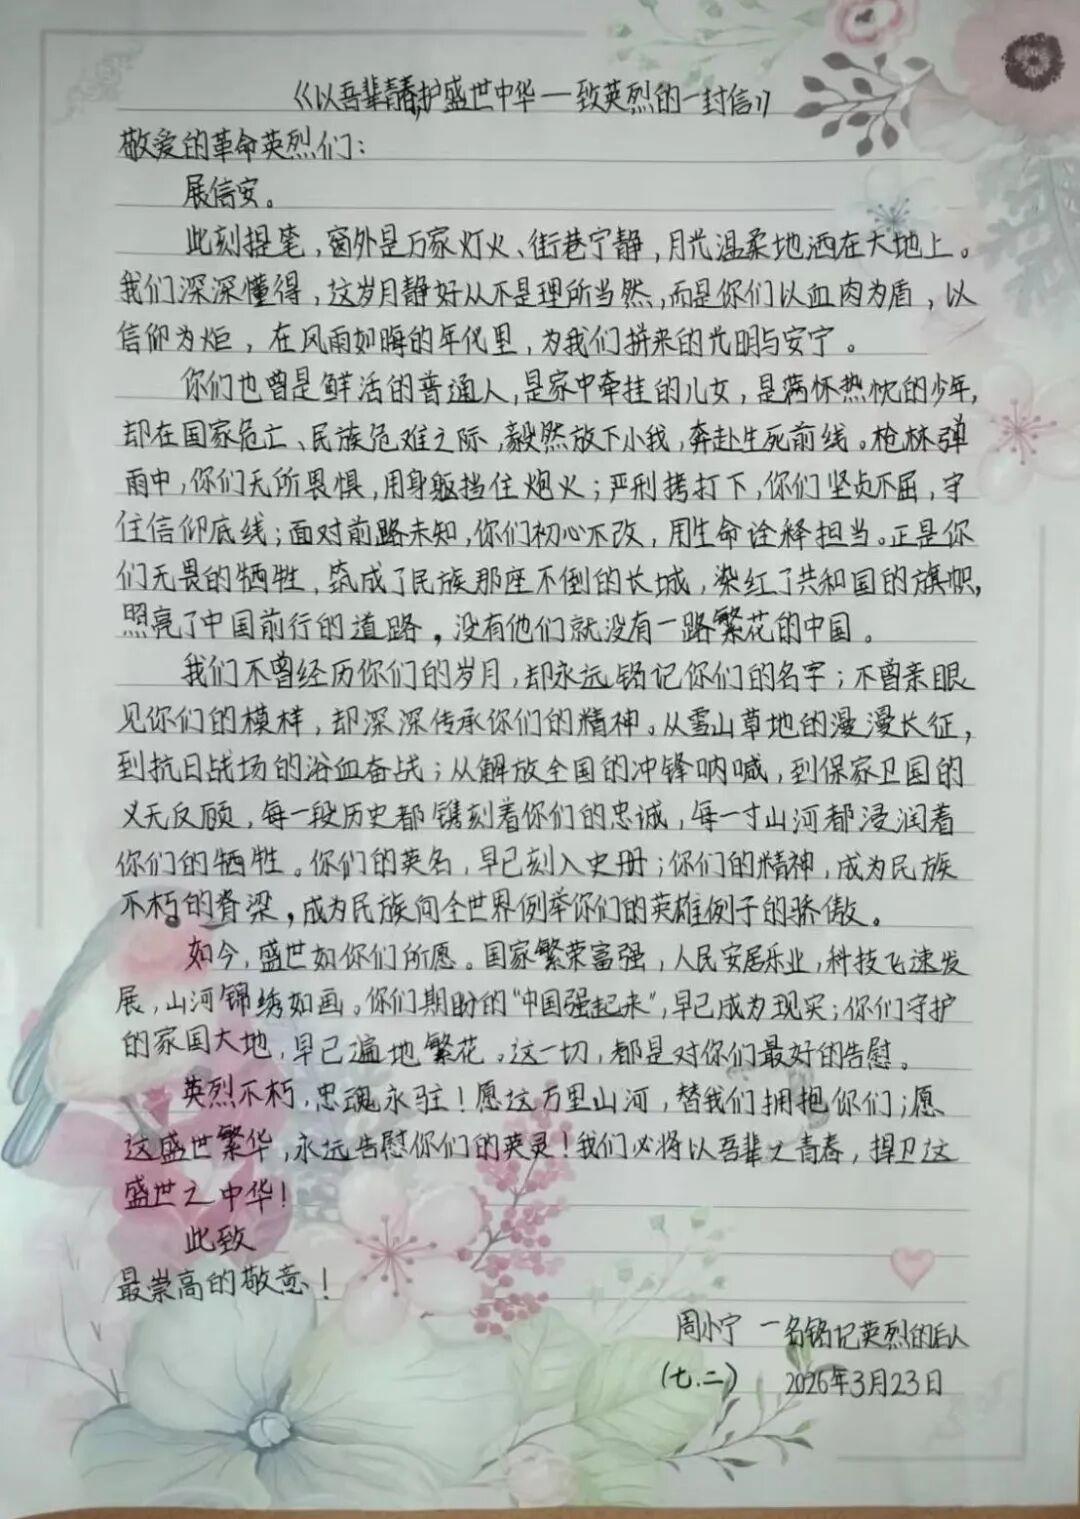 《以吾辈青春,护盛世中华—致英烈的一封信》
敬爱的革命英烈们：
展信安。
此刻提笔，窗外是万家灯火、街巷宁静，月光温柔地洒在大地上。
我们深深懂得，这岁月静好从不是理所当然，而是你们以血肉为盾，以
信仰为炬，在风雨如晦的年代里，为我们拼来的光明与安宁。
你们也曾是鲜活的普通人，是家中牵挂的儿女，是满怀热忱的少年，
却在国家危亡、民族危难之际，毅然放下小我，奔赴生死前线。枪林弹
雨中，你们无所畏惧，用身躯挡住炮火；严刑拷打下，你们坚贞不屈，守
住信仰底线；面对前路未知，你们初心不改，用生命诠释担当。正是你
们无畏的牺牲，筑成了民族那座不倒的长城，染红了共和国的旗帜，
照亮了中国前行的道路，没有他们就没有一路繁花的中国。
我们不曾经历你们的岁月，却永远铭记你们的名字；不曾亲眼
见你们的模样，却深深传承你们的精神。从雪山草地的漫漫长征，
到抗日战场的浴血奋战；从解放全国的冲锋呐喊，到保家卫国的
义无反顾，每一段历史都镌刻着你们的忠诚，每一寸山河都浸润着
你们的牺牲。你们的英名，早已刻入史册；你们的精神，成为民族
不朽的脊梁，成为民族向全世界例举你们的英雄例子的骄傲。
如今，盛世如你们所愿。国家繁荣富强，人民安居乐业，科技飞速发
展，山河锦绣如画。你们期盼的“中国强起来”，早已成为现实；你们守护
的家国大地，早已遍地繁花。这一切，都是对你们最好的告慰。
英烈不朽，忠魂永驻！愿这万里山河，替我们拥抱你们；愿
这盛世繁华，永远告慰你们的英灵！我们必将以吾辈之青春，捍卫这
盛世之中华！
此致
最崇高的敬意！
周小宁 一名铭记英烈的后人
（七.二） 2026年3月23日